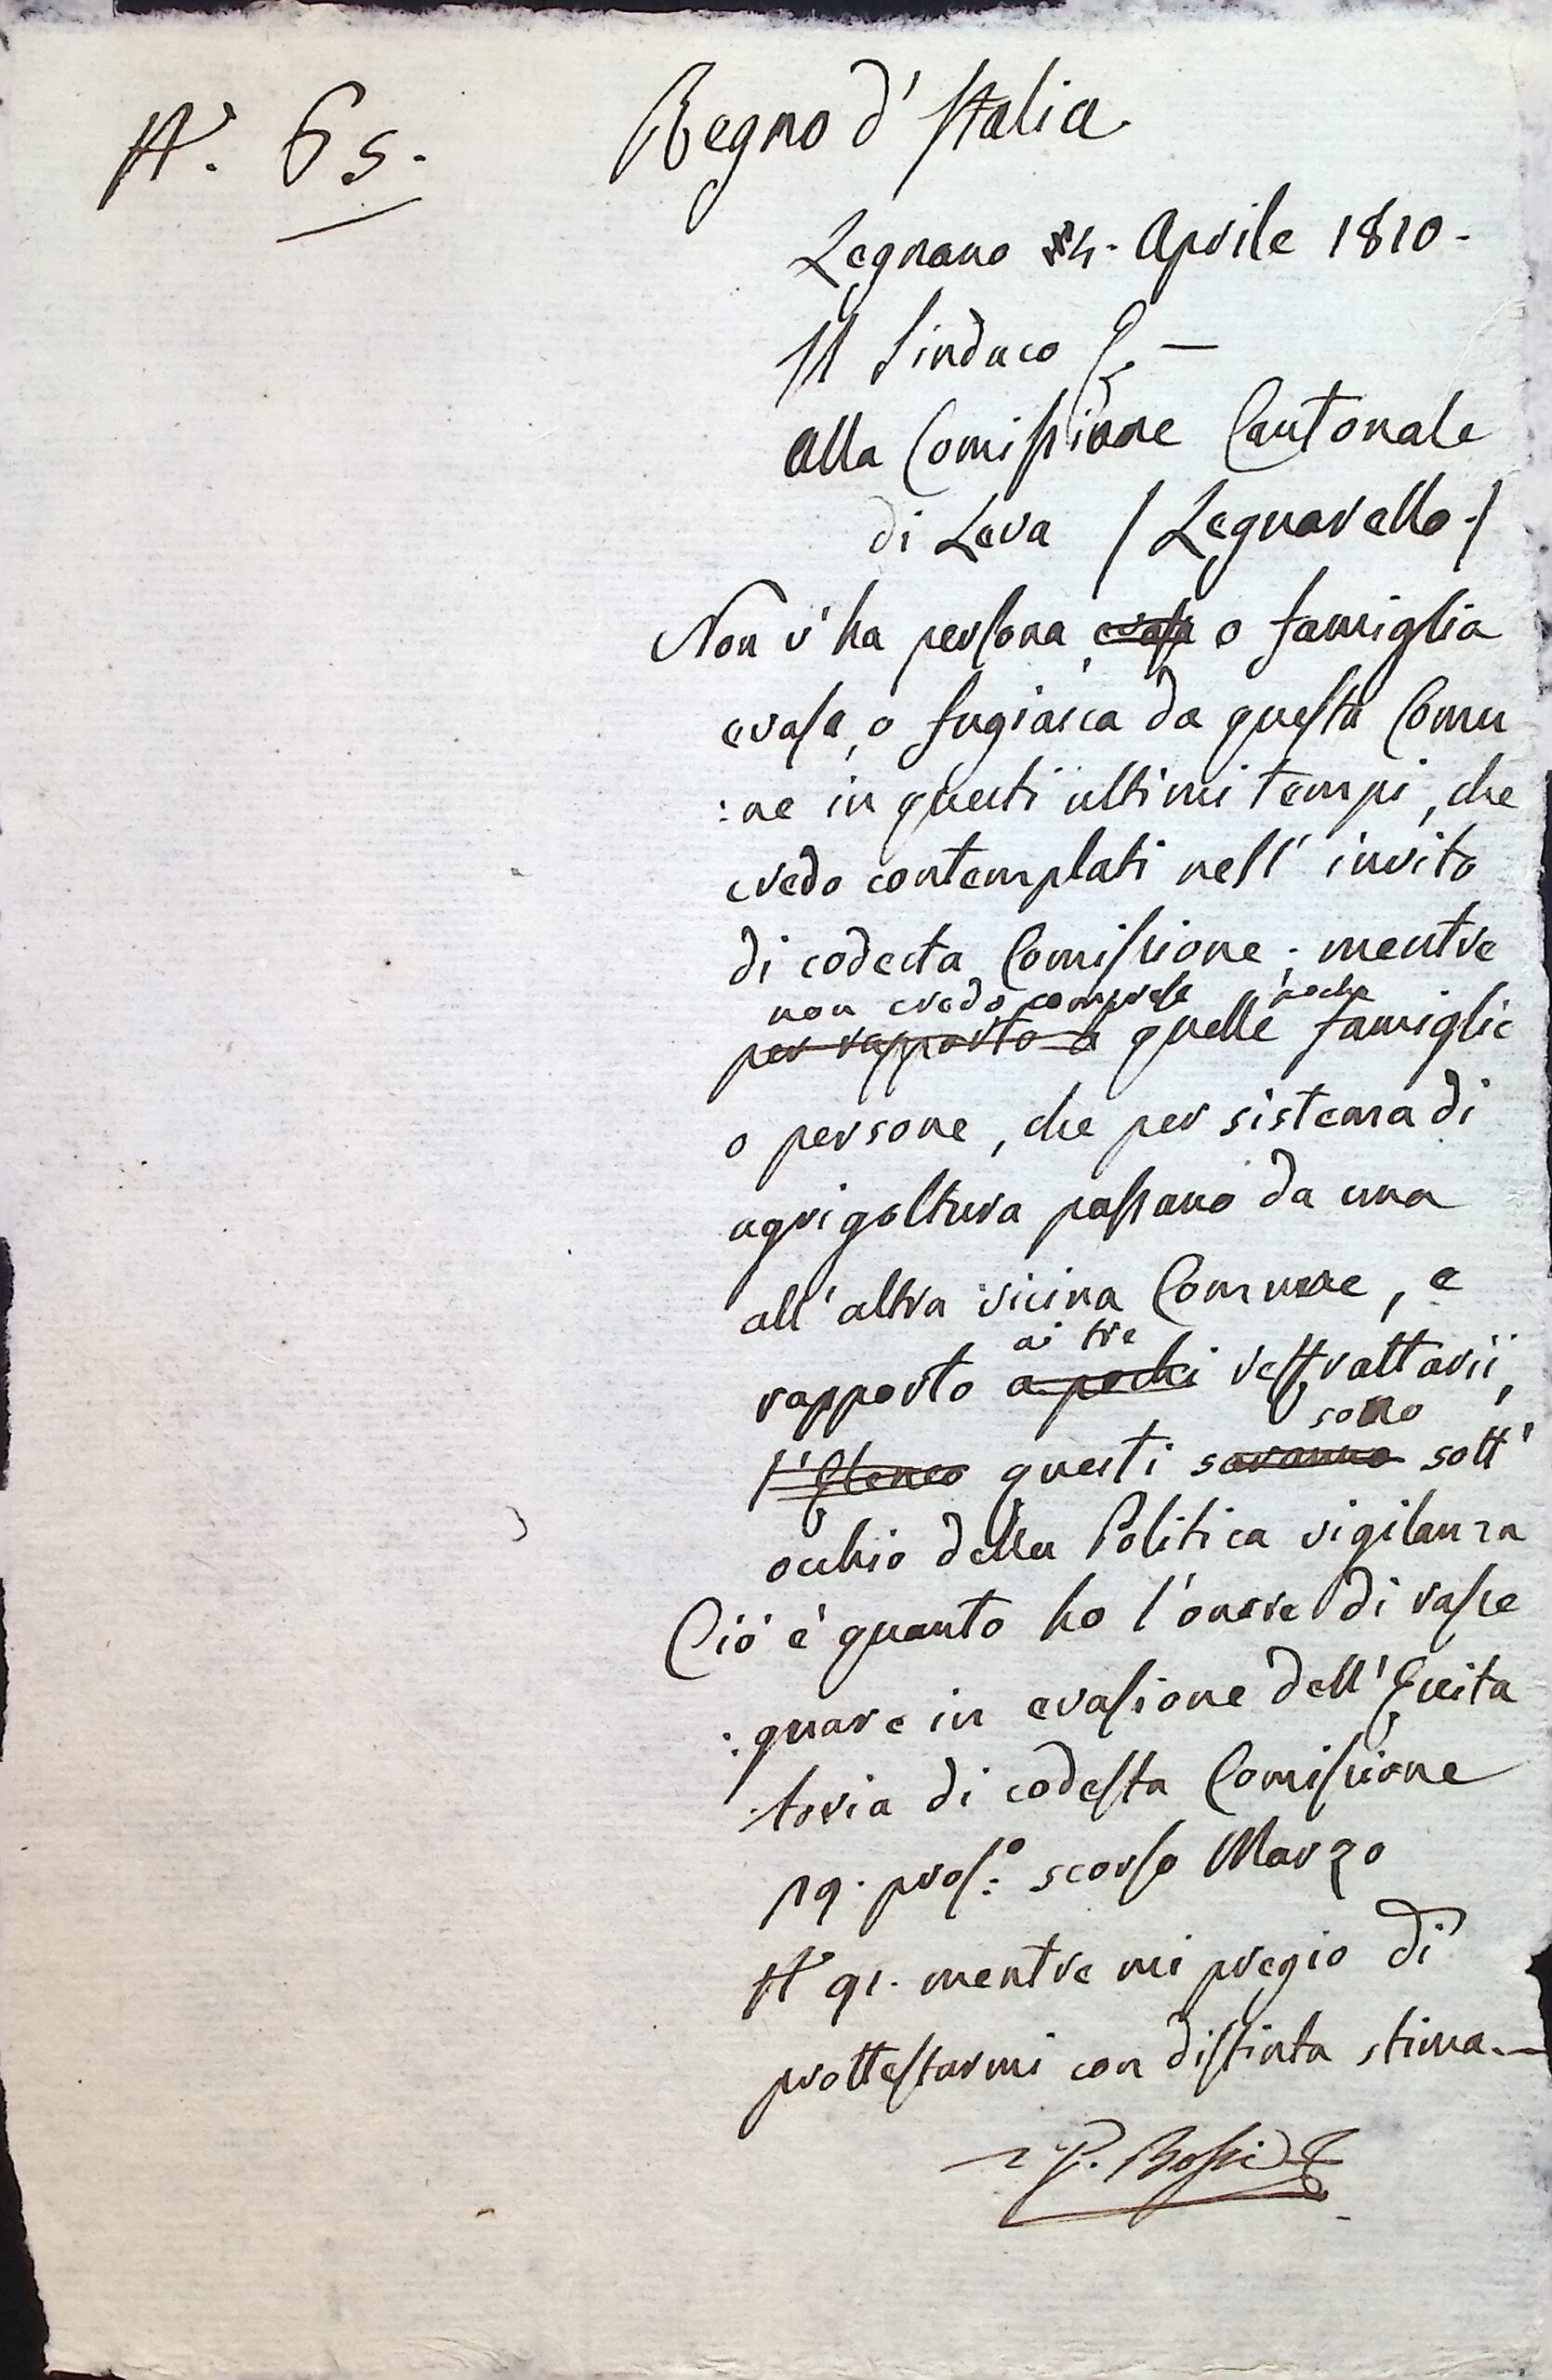 N.° 65.
Regno d'Italia
Legnano 4. Aprile 1810.
Il Sindaco
Alla Comissione Cantonale
di Leva / Legnarello /
Non v'ha persona evasa o famiglia
evasa, o fugiasca da questa Comu
:ne in questi ultimi tempi, che
credo contemplati nell' invito
di codesta Comissione; mentre
non credo comprese anche
per rapporto a quelle famiglie
o persone, che per sistema di
agrigoltura passano da una
all'altra vicina Comune, e
ai tre
rapporto a pochi restrattarii,
sono
l'Elenco questi saranno sott'
occhio della Politica vigilanza
Ciò è quanto ho l'onore di rasse
:gnare in evasione dell'Ecita
:toria di codesta Comissione
19. pros.° scorso Marzo
N° 91. mentre mi pregio di
prottestarmi con distinta stima.
P. Bossi